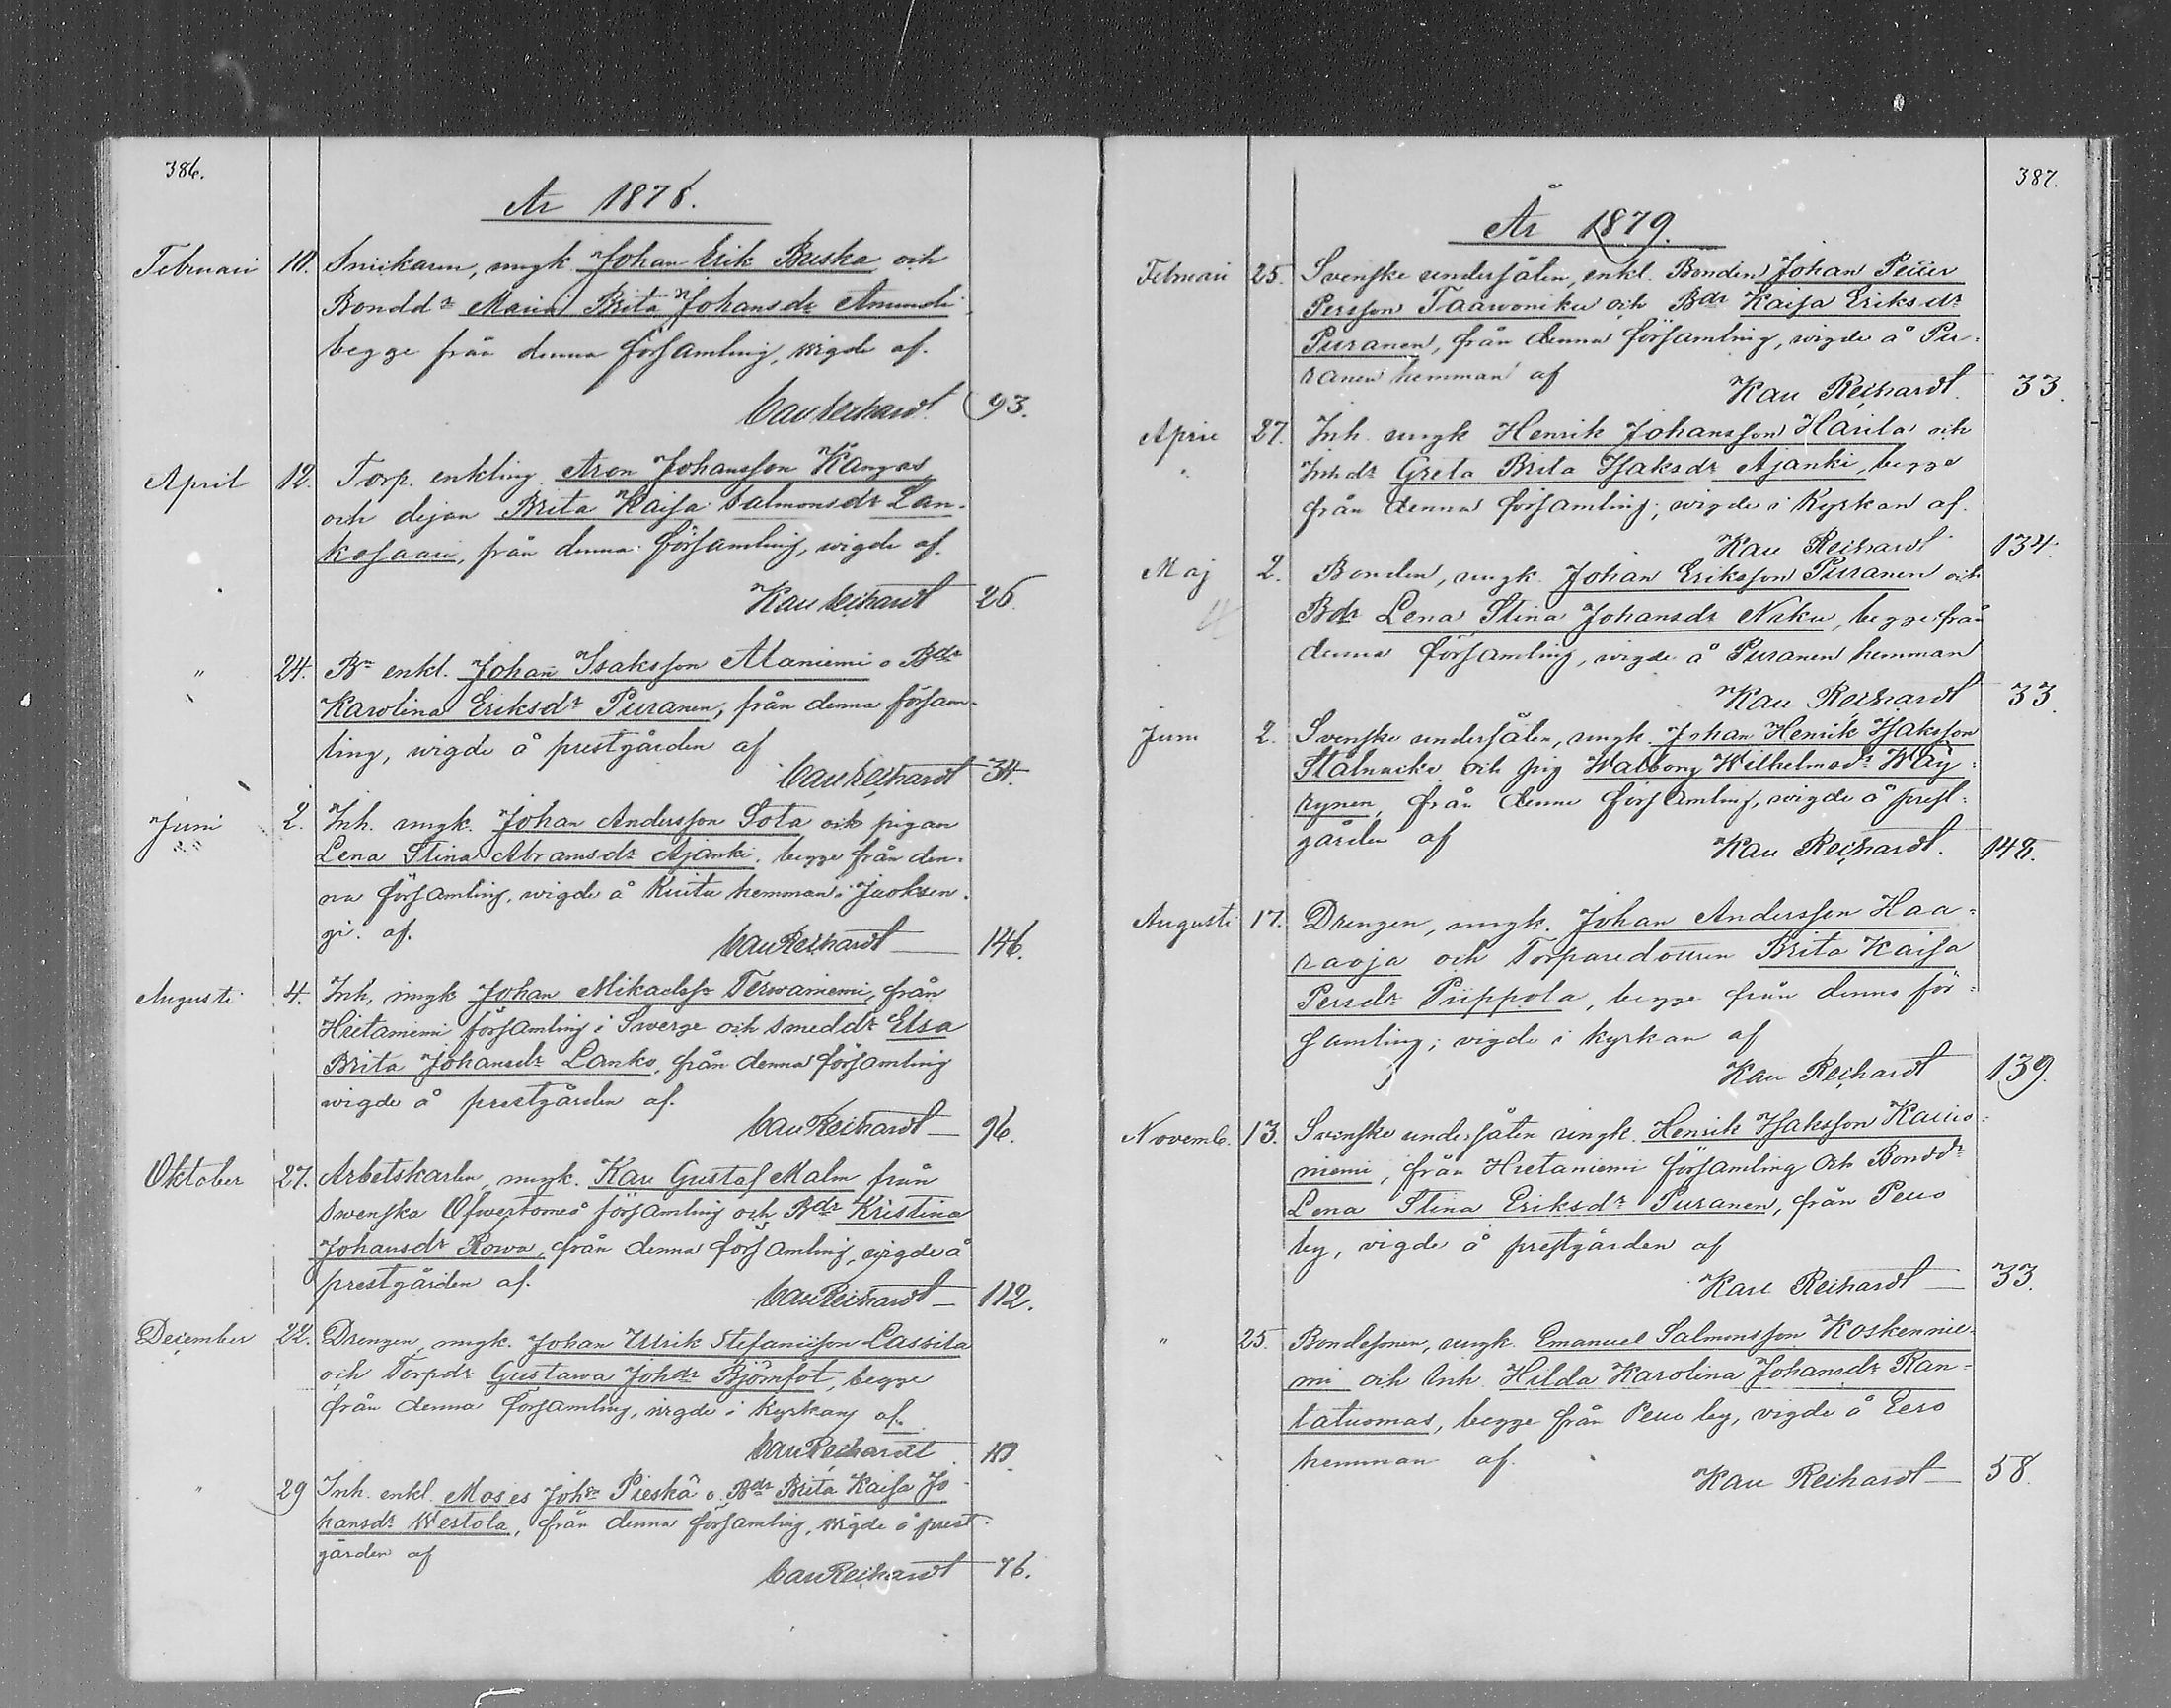 386.
År 1878.
Februari 10. Snickaren, ungk. Johan Erik Buska och
Bondd:r Maria Brita Johansdr Ammunde
begge från denna församling, wigde af.
Carl Reihardt 93.
April 12. Torp. enkling Aron Johansson Kangas
och dejan Brita Kaisa Salmonsdr Lan-
kosaari, från denna församling, wigde af.
Karl Reihardt 26.
" 24. B:n enkl. Johan Isaksson Alaniemi o Bdr
Karolina Eriksdr Puranen, från denna försam-
ling, wigde å prestgården af
Carl Reihardt 34.
Juni 2. Inh. ungk. Johan Andersson Sota och pigan
Lena Stina Abramsdr Ajanki, begge från den-
na församling, wigde å Kuitu hemman i Juoksen-
gi. af.
Carl Reihardt 146.
Augusti 4. Inh, ungk Johan Mikaelss:n Terwaniemi, från
Hietaniemi församling i Swerge och Smeddr Elsa
Brita Johansdr Lanko, från denna församling
wigde å prestgården af.
Carl Reihardt 96.
Oktober 27. Arbetskarlen, ungk. Karl Gustaf Malm från
Swenska Öfwertorneå församling och Bdr Kristina
Johansdr Rowa, från denna församling, wigde å
prestgården af.
Carl Reihardt 112.
December 22. Drengen, ungk. Johan Ulrik Stefansson Lassila
och Torpdr Gustawa Johdr Björnfot, begge
från denna församling, wigde i kyrkan af.
Carl Reihardt
" 29 Inh. enkl. Moses Joh:n Pieskä o. Bdr Brita Kaisa Jo-
hansdr Westola, från denna församling, wigde å prest-
gården af
Carl Reihardt 76.
387.
År 1879.
Februari 25. Svenske undersåten, enkl. Bonden Johan Petter
Persson Taawoniku och Bdr Kaisa Eriksdr
Puranen, från denna församling, wigde å Pu-
ranen hemman af
Karl Reihardt. 33.
April 27. Inh. ungk Henrik Johansson Harila och
Inhdr Greta Brita Isaksdr Ajanki, begge
från denna församling; wigde i Kyrkan af.
Karl Reihardt 134.
Maj 2. Bonden, ungk. Johan Eriksson Puranen och
Bdr Lena Stina Johansdr Naku, begge från
denna församling, wigde å Puranen hemman
Karl Reihardt 33.
Juni 2. Svenske undersåten, ungk Johan Henrik Isaksson
Stålnacke och pig Walborg Wilhelmsdr Wäy-
rynen, från denna församling, wigde å prest-
gården af
Karl Reihardt. 148.
Augusti 17. Drengen, ungk. Johan Andersson Haa-
raoja och Torparedottren Brita Kaisa
Persdr Piippola, begge från denna för-
samling; vigde i kyrkan af
Karl Reihardt 139.
Novemb. 13. Svenske undersåten ungk. Henrik Isaksson Kaino-
niemi, från Hietaniemi församling och Bonddr
Lena Stina Eriksdr Puranen, från Pello
by, vigde å prestgården af
Karl Reihardt 33.
" 25. Bondesonen, ungk. Emanuel Salmonsson Koskennie-
mi och Inh. Hilda Karolina Johansdr Ran-
tatuomas, begge från Pello by, vigde å Eero
hemman af.
Karl Reihardt 58.